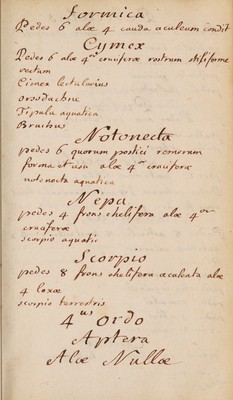 Formica
Pedes 6 alæ 4 cauda aculeum condit
Cymex
Pedes 6 alæ 4or cruciferæ rostrum stiliforme
rectum
Cimex lectularius
Tipula aquatica
Bruchus
Notonecta
pedes 6 quorum postici remorum
forma et usu alæ 4or cruciferæ
notonecta aquatica
Nepa
pedes 4 frons chelifera alæ 4or
cruciferæ
scorpio aquatic
Scorpio
pedes 8 frons chelifera aculenta alæ
4 loxæ
scorpio terrestris
4us Ordo
Aptera
Alæ Nullæ